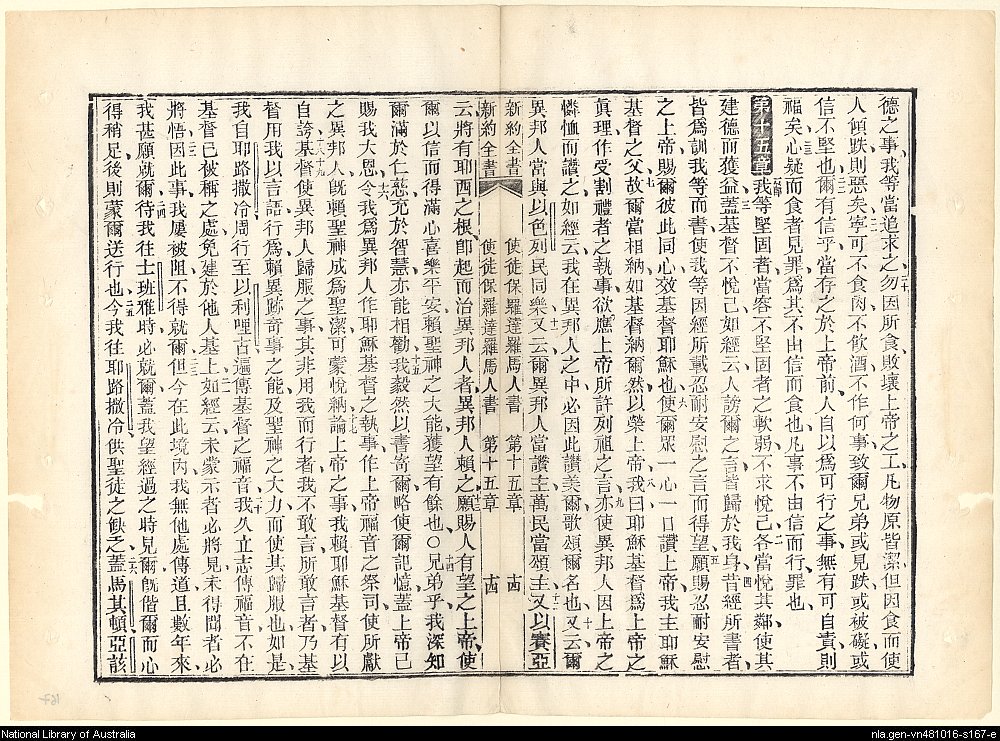 德之事、我等當追求之、勿因所食敗壞上帝之工、凡物原皆潔但因食而使
人傾跌則惡矣、寧可不食肉不飲酒不作何事致爾兄弟或見跌或被礙或
信不堅也、爾有信乎、當存之於上帝前、人自以爲可行之事無有可自責則
福矣、心疑而食者見罪爲其不由信而食也、凡事不由信而行、罪也、
第十五章 我等堅固者當容不堅固者之軟弱不求悅己、各當悅其鄰使其
建德而獲益、蓋基督不悅己如經云人謗爾之言皆歸於我身、昔經所書者、
皆爲訓我等而書、使我等因經所載忍耐安慰之言而得望、願賜忍耐安慰
之上帝賜爾彼此同心效基督耶穌也、使爾眾一心一口讚上帝我主耶穌
基督之父、故爾當相納、如基督納爾然以榮上帝、我曰耶穌基督爲上帝之
眞理作受割禮者之執事欲應上帝所許列祖之言、亦使異邦人因上帝之
憐恤而讚之、如經云、我在異邦人之中必因此讚美爾歌頌爾名也、又云、爾
異邦人當與以色列民同樂、又云爾異邦人當讚主萬民當頌主、又以賽亞
新約全書 使徒保羅達羅馬人書 第十五章 十四
新約全書 使徒保羅達羅馬人書 第十五章 十四
云將有耶西之根、卽起而治異邦人者、異邦人賴之、願賜人有望之上帝使
爾以信而得滿心喜樂平安、賴聖神之大能獲望有餘也、○兄弟乎、我深知
爾滿於仁慈、充於智慧、亦能相勸、我毅然以書寄爾略使爾記憶、蓋上帝已
賜我大恩、令我爲異邦人作耶穌基督之執事、作上帝福音之祭司、使所獻
之異邦人旣賴聖神成爲聖潔可蒙悅納、論上帝之事我賴耶穌基督有以
自誇、基督使異邦人歸服之事、其非用我而行者我不敢言、所敢言者乃基
督用我以言語行爲、賴異跡奇事之能、及聖神之大力而使其歸服也、如是
我自耶路撒冷周行至以利哩古遍傳基督之福音、我久立志傳福音不在
基督已被稱之處、免建於他人基上、如經云未蒙示者必將見、未得聞者必
將悟、因此事我屢被阻不得就爾、但今在此境內我無他處傳道、且數年來
我甚願就爾、待我往士班雅時必就爾、蓋我望經過之時見爾、旣偕爾而心
得稍足、後則蒙爾送行也、今我往耶路撒冷供聖徒之缺乏、蓋馬其頓亞該
167
National Library of Australia
nla.gen-vn481016-s167-e